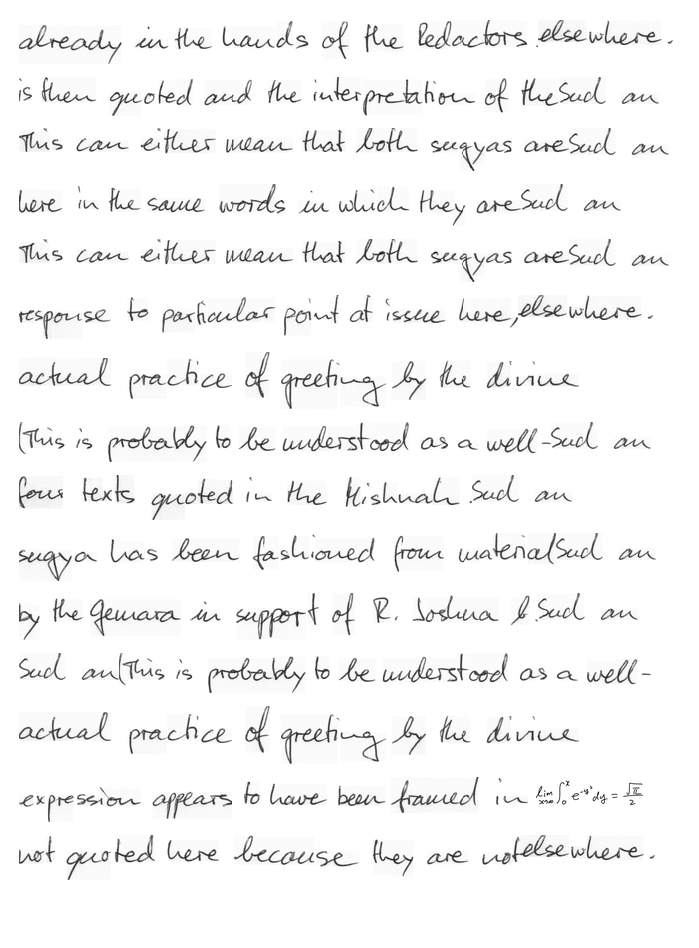 already in the hands of the Redactors elsewhere.
is then quoted and the interpretation of the Sud an
This can either mean that both sugyas are Sud an
here in the same words in which they are Sud an
This can either mean that both sugyas are Sud an
response to particular point at issue here, elsewhere.
actual practice of greeting by the divine
(This is probably to be understood as a well-Sud an
four texts quoted in the Mishnah Sud an
sugya has been fashioned from material Sud an
by the Gemara in support of R. Joshua b. Sud an
Sud an (This is probably to be understood as a well-
actual practice of greeting by the divine
expression appears to have been framed in $\lim_{x \to \infty} \int_0^x e^{-y^2} dy = \frac{\sqrt{\pi}}{2}$
not quoted here because they are not elsewhere.